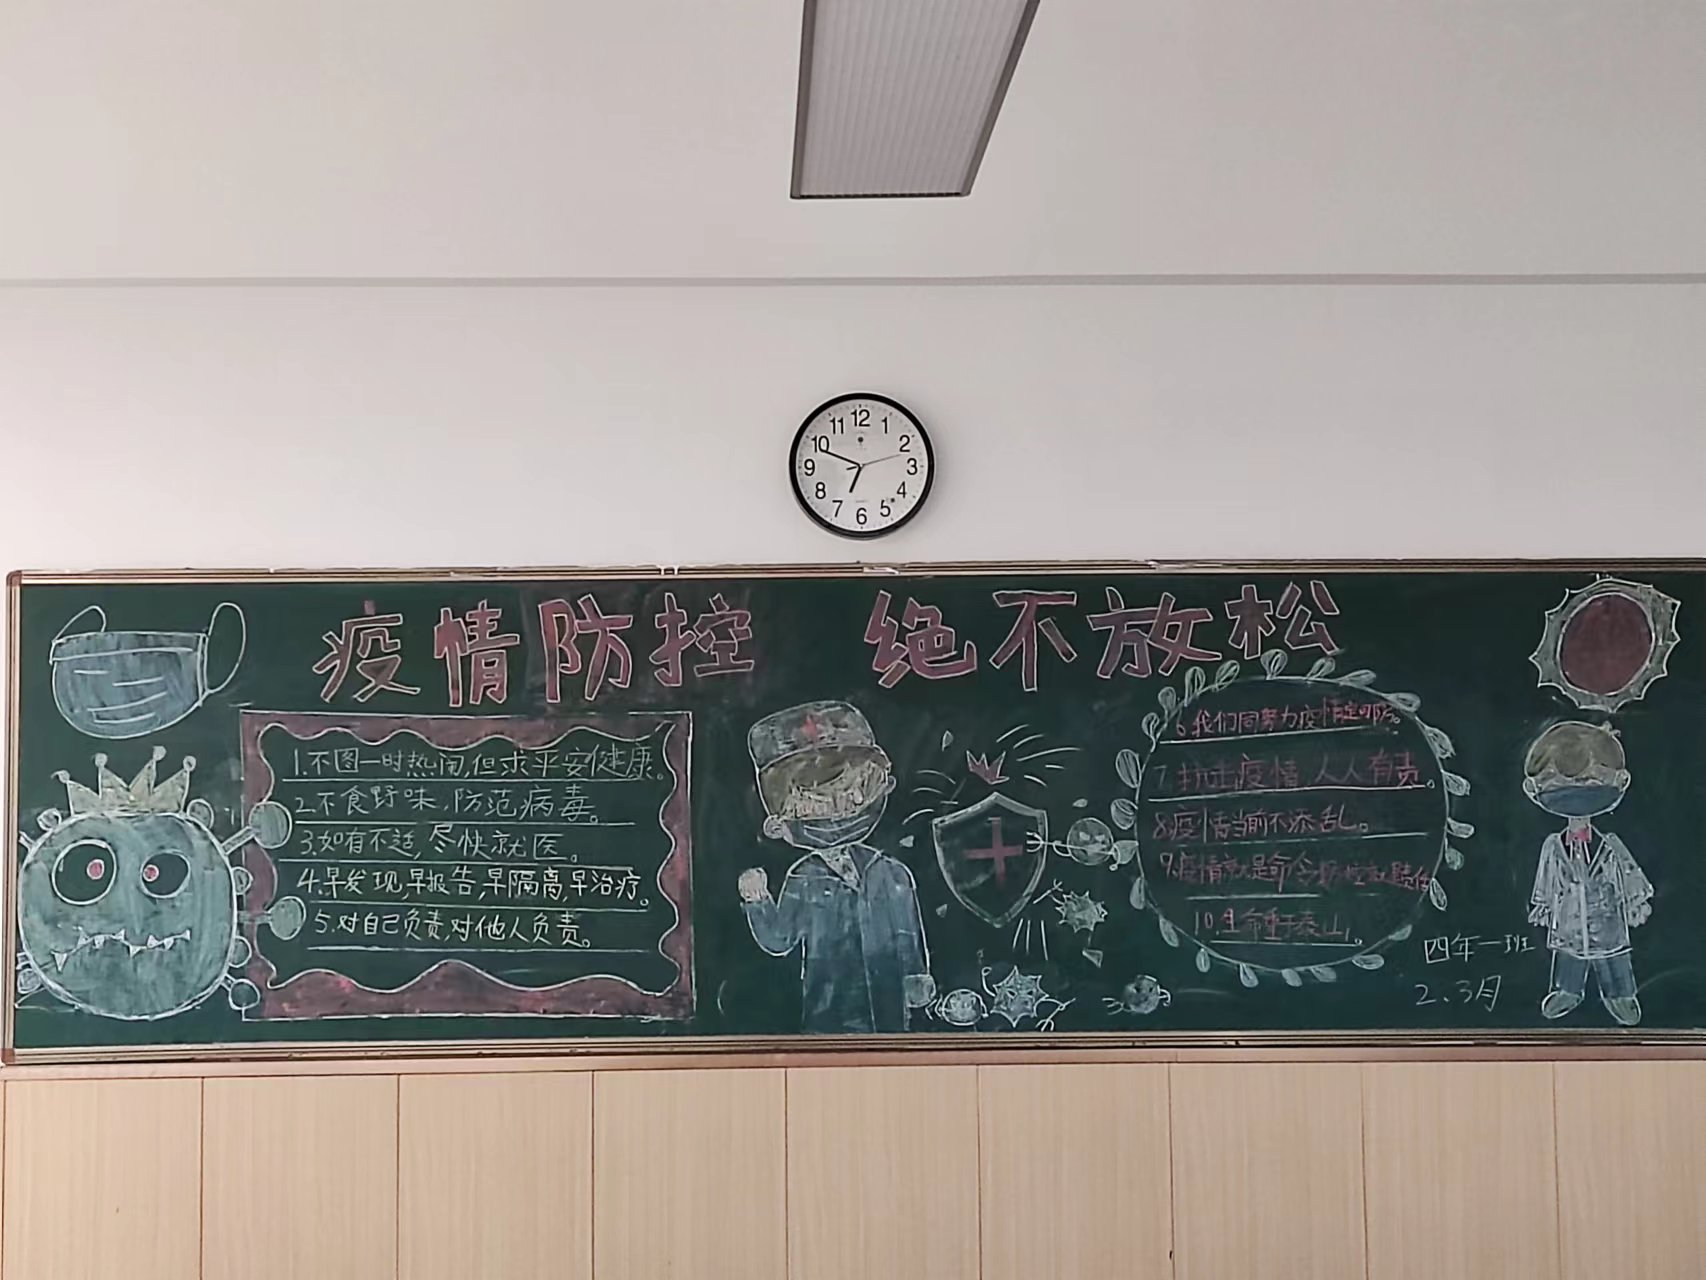 12
11
1
10
2
9
3
8
4
7
5
6
疫情防控 绝不放松
1.不图一时热闹,但求平安健康。
2.不食野味,防范病毒。
3.如有不适,尽快就医。
4.早发现,早报告,早隔离,早治疗。
5.对自己负责,对他人负责。
6.我们同努力疫情定可防。
7.抗击疫情,人人有责。
8.疫情当前不添乱。
9.疫情就是命令防控就是责任
10.生命重于泰山。
四年一班
2.3月